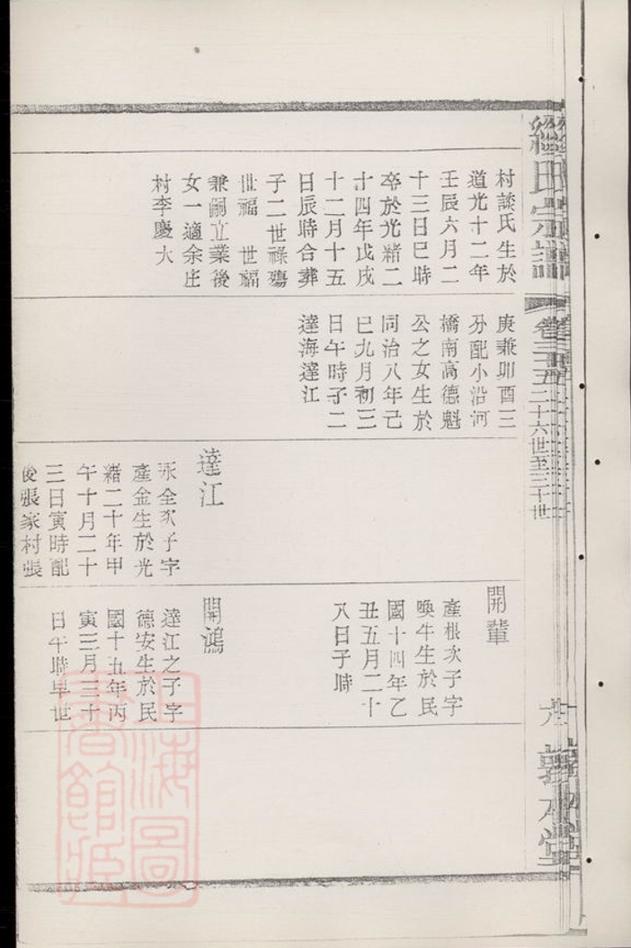 經氏宗譜
卷三十五
二十六世至三十世
村談氏生於
道光十二年
壬辰六月二
十三日巳時
卒於光緒二
十四年戊戌
十二月十五
日辰時合葬
子二世祿殤
世福 世福
兼嗣立業後
女一適余庄
村李慶大
庚兼卯酉三
分配小沿河
橋南高德魁
公之女生於
同治八年己
巳九月初三
日午時子二
達海達江
達江
永全次子字
產金生於光
緒二十年甲
午十月二十
三日寅時配
後張家村張
開輩
產根次子字
喚牛生於民
國十四年乙
丑五月二十
八日子時
開鴻
達江之子字
德安生於民
國十五年丙
寅三月三十
日午時早世